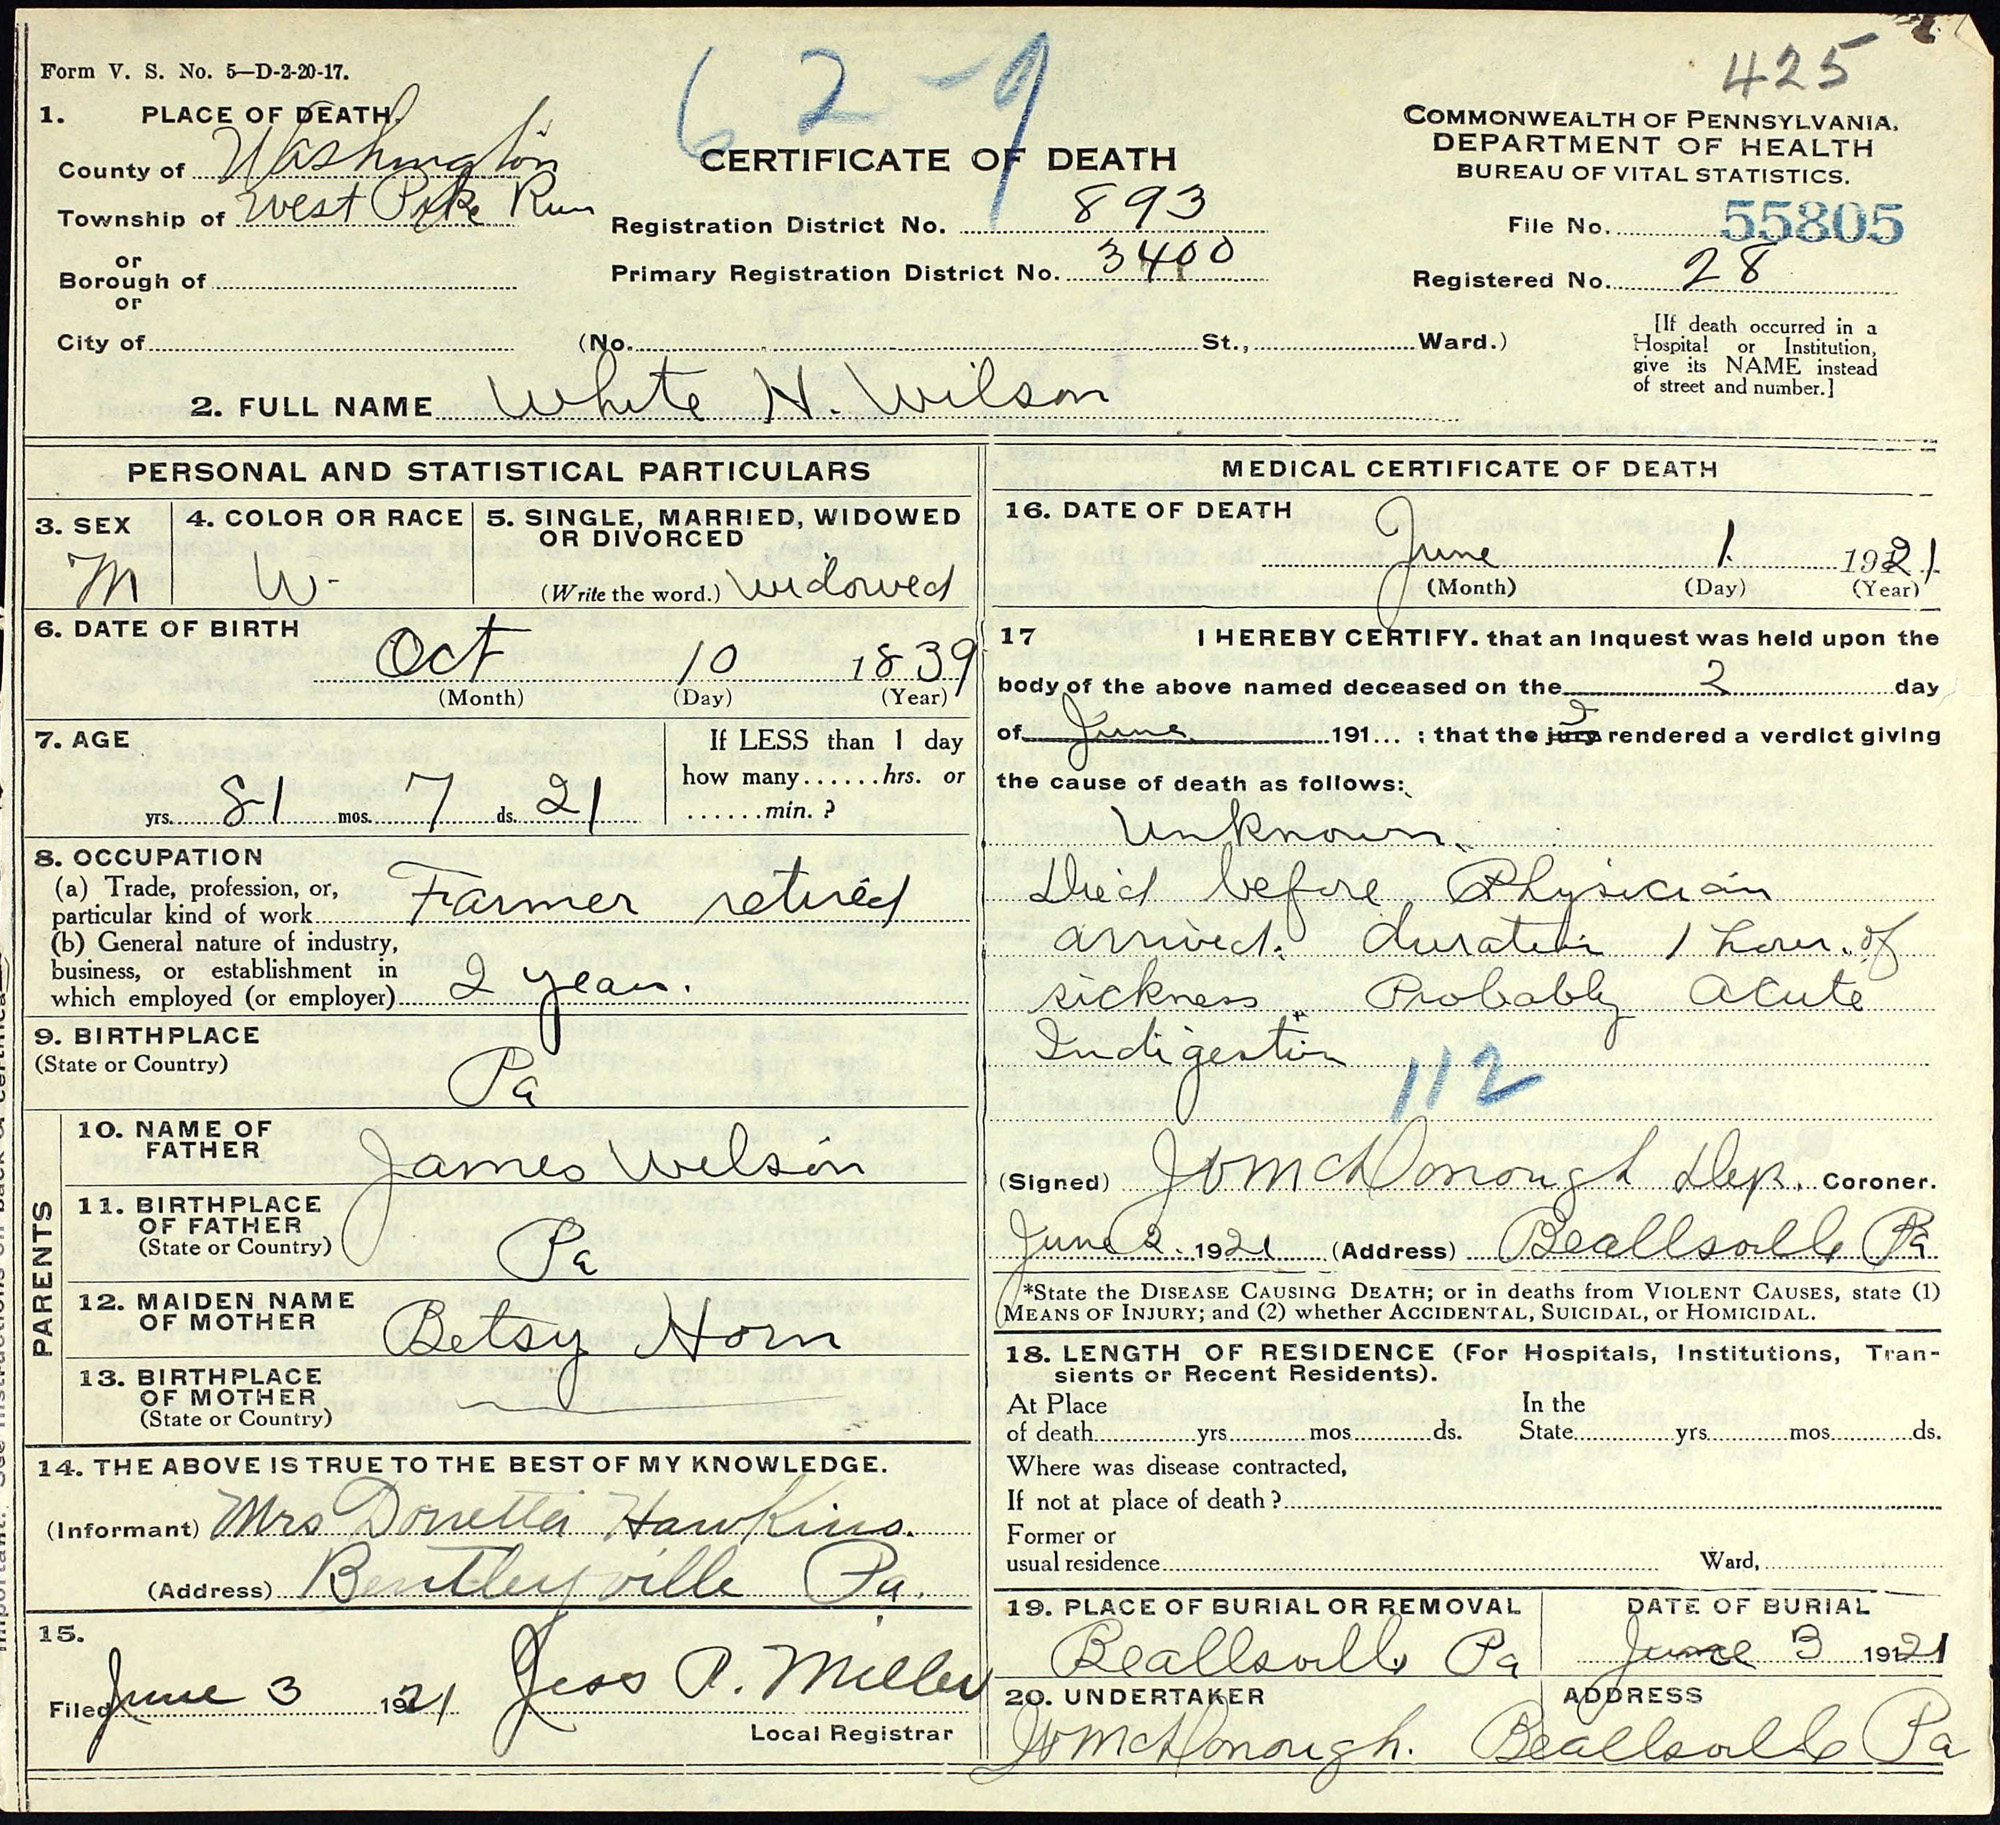 425
62-9
Form V. S. No. 5—D-2-20-17.
1. PLACE OF DEATH.
County of Washington
Township of West Pike Run
or
Borough of
or
City of (No. St., Ward.)
CERTIFICATE OF DEATH
Registration District No. 893
Primary Registration District No. 3400
COMMONWEALTH OF PENNSYLVANIA.
DEPARTMENT OF HEALTH
BUREAU OF VITAL STATISTICS.
File No. 55805
Registered No. 28
[If death occurred in a
Hospital or Institution,
give its NAME instead
of street and number.]
2. FULL NAME White H. Wilson
PERSONAL AND STATISTICAL PARTICULARS
3. SEX
M
4. COLOR OR RACE
W-
5. SINGLE, MARRIED, WIDOWED
OR DIVORCED
(Write the word.) Widowed
6. DATE OF BIRTH
Oct 10 1839
(Month) (Day) (Year)
7. AGE
yrs. 81 mos. 7 ds. 21
If LESS than 1 day
how many......hrs. or
......min. ?
8. OCCUPATION
(a) Trade, profession, or,
particular kind of work Farmer retired
(b) General nature of industry,
business, or establishment in
which employed (or employer) 2 years.
9. BIRTHPLACE
(State or Country)
Pa
PARENTS
10. NAME OF
FATHER
James Wilson
11. BIRTHPLACE
OF FATHER
(State or Country)
Pa
12. MAIDEN NAME
OF MOTHER
Betsy Horn
13. BIRTHPLACE
OF MOTHER
(State or Country)
14. THE ABOVE IS TRUE TO THE BEST OF MY KNOWLEDGE.
(Informant) Mrs Donetta Hawkins.
(Address) Bentleyville Pa.
15.
Filed June 3 1921 Jess P. Miller
Local Registrar
MEDICAL CERTIFICATE OF DEATH
16. DATE OF DEATH
June 1 1921
(Month) (Day) (Year)
17 I HEREBY CERTIFY. that an inquest was held upon the
body of the above named deceased on the 2 day
of June 191... ; that the jury rendered a verdict giving
the cause of death as follows:
Unknown.
Died before Physician
arrived. duration 1 hour. of
sickness Probably Acute
Indigestion
112
(Signed) McDonough Dep. Coroner.
June 2. 1921 (Address) Beallsville Pa
*State the DISEASE CAUSING DEATH; or in deaths from VIOLENT CAUSES, state (1)
MEANS OF INJURY; and (2) whether ACCIDENTAL, SUICIDAL, or HOMICIDAL.
18. LENGTH OF RESIDENCE (For Hospitals, Institutions, Tran-
sients or Recent Residents).
At Place In the
of death yrs mos ds. State yrs mos ds.
Where was disease contracted,
If not at place of death ?
Former or
usual residence Ward,
19. PLACE OF BURIAL OR REMOVAL
Beallsville Pa
DATE OF BURIAL
June 3 1921
20. UNDERTAKER ADDRESS
McDonough. Beallsville Pa